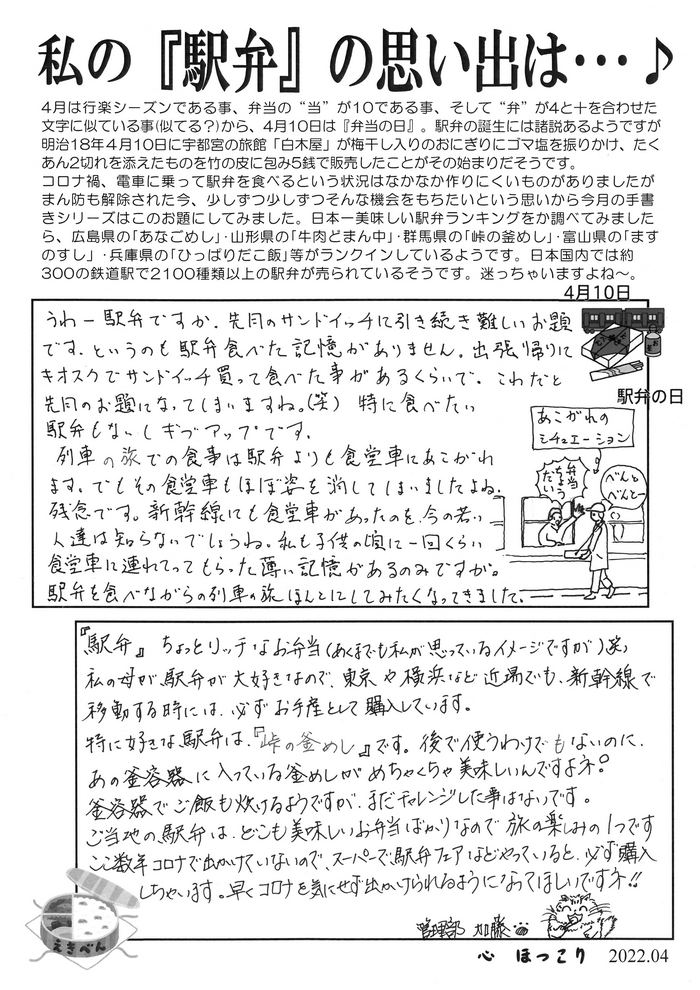 私の『駅弁』の思い出は…♪
4月は行楽シーズンである事、弁当の“当”が10である事、そして“弁”が4と十を合わせた
文字に似ている事(似てる?)から、4月10日は『弁当の日』。駅弁の誕生には諸説あるようですが
明治18年4月10日に宇都宮の旅館「白木屋」が梅干し入りのおにぎりにゴマ塩を振りかけ、たく
あん2切れを添えたものを竹の皮に包み5銭で販売したことがその始まりだそうです。
コロナ禍、電車に乗って駅弁を食べるという状況はなかなか作りにくいものがありましたが
まん防も解除された今、少しずつ少しずつそんな機会をもちたいという思いから今月の手書
きシリーズはこのお題にしてみました。日本一美味しい駅弁ランキングをか調べてみました
ら、広島県の「あなごめし」・山形県の「牛肉どまん中」・群馬県の「峠の釜めし」・富山県の「ます
のすし」・兵庫県の「ひっぱりだこ飯」等がランクインしているようです。日本国内では約
300の鉄道駅で2100種類以上の駅弁が売られているそうです。迷っちゃいますよね～。
4月10日
駅弁の日
うわー駅弁ですか、先月のサンドイッチに引き続き難しいお題
です、というのも駅弁食べた記憶がありません。出張帰りに
キオスクでサンドイッチ買って食べた事があるくらいで、これだと
先月のお題になってしまいますね。(笑) 特に食べたい
駅弁もないしギブアップです。
列車の旅での食事は駅弁よりも食堂車にあこがれ
ます。でもその食堂車もほぼ姿を消してしまいましたよね、
残念です。新幹線にも食堂車があったのを、今の若い
人達は知らないでしょうね。私も子供の頃に一回くらい
食堂車に連れてってもらった薄い記憶があるのみですが。
駅弁を食べながらの列車の旅ほんとにしてみたくなってきました。
あこがれの
シチュエーション
弁当
ちょう
だいう
べんと
べんとー
『駅弁』 ちょっとリッチなお弁当(あくまでも私が思っているイメージですが)笑)
私の母が駅弁が大好きなので、東京や横浜など近場でも、新幹線で
移動する時には、必ずお手産として購入しています。
特に好きな駅弁は、『峠の釜めし』です。後で使うわけでもないのに、
あの釜容器に入っている釜めしがめちゃくちゃ美味しいんですよネ?
釜容器でご飯も炊けるようですが、まだチャレンジした事はないです。
ご当地の駅弁は、どこも美味しいお弁当ばかりなので旅の楽しみの1つです
ここ数年コロナで出かけていないので、スーパーで駅弁フェアなどやっていると、必ず購入
しちゃいます。早くコロナを気にせず出かけられるようになってほしいですネ!!
管理部 加藤
えきべん
心 ほっこり 2022.04